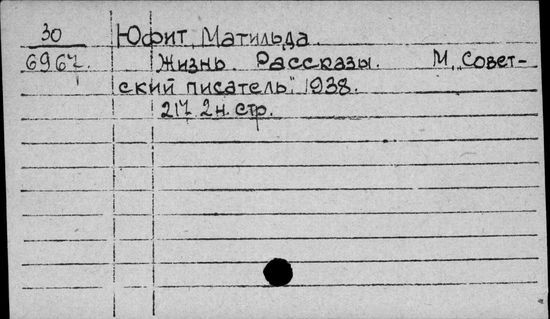 30 Юфит, Матильда.
6967. Жизнь. Рассказы. М, Совет-
ский писатель" 1938.
217, 2 н. стр.